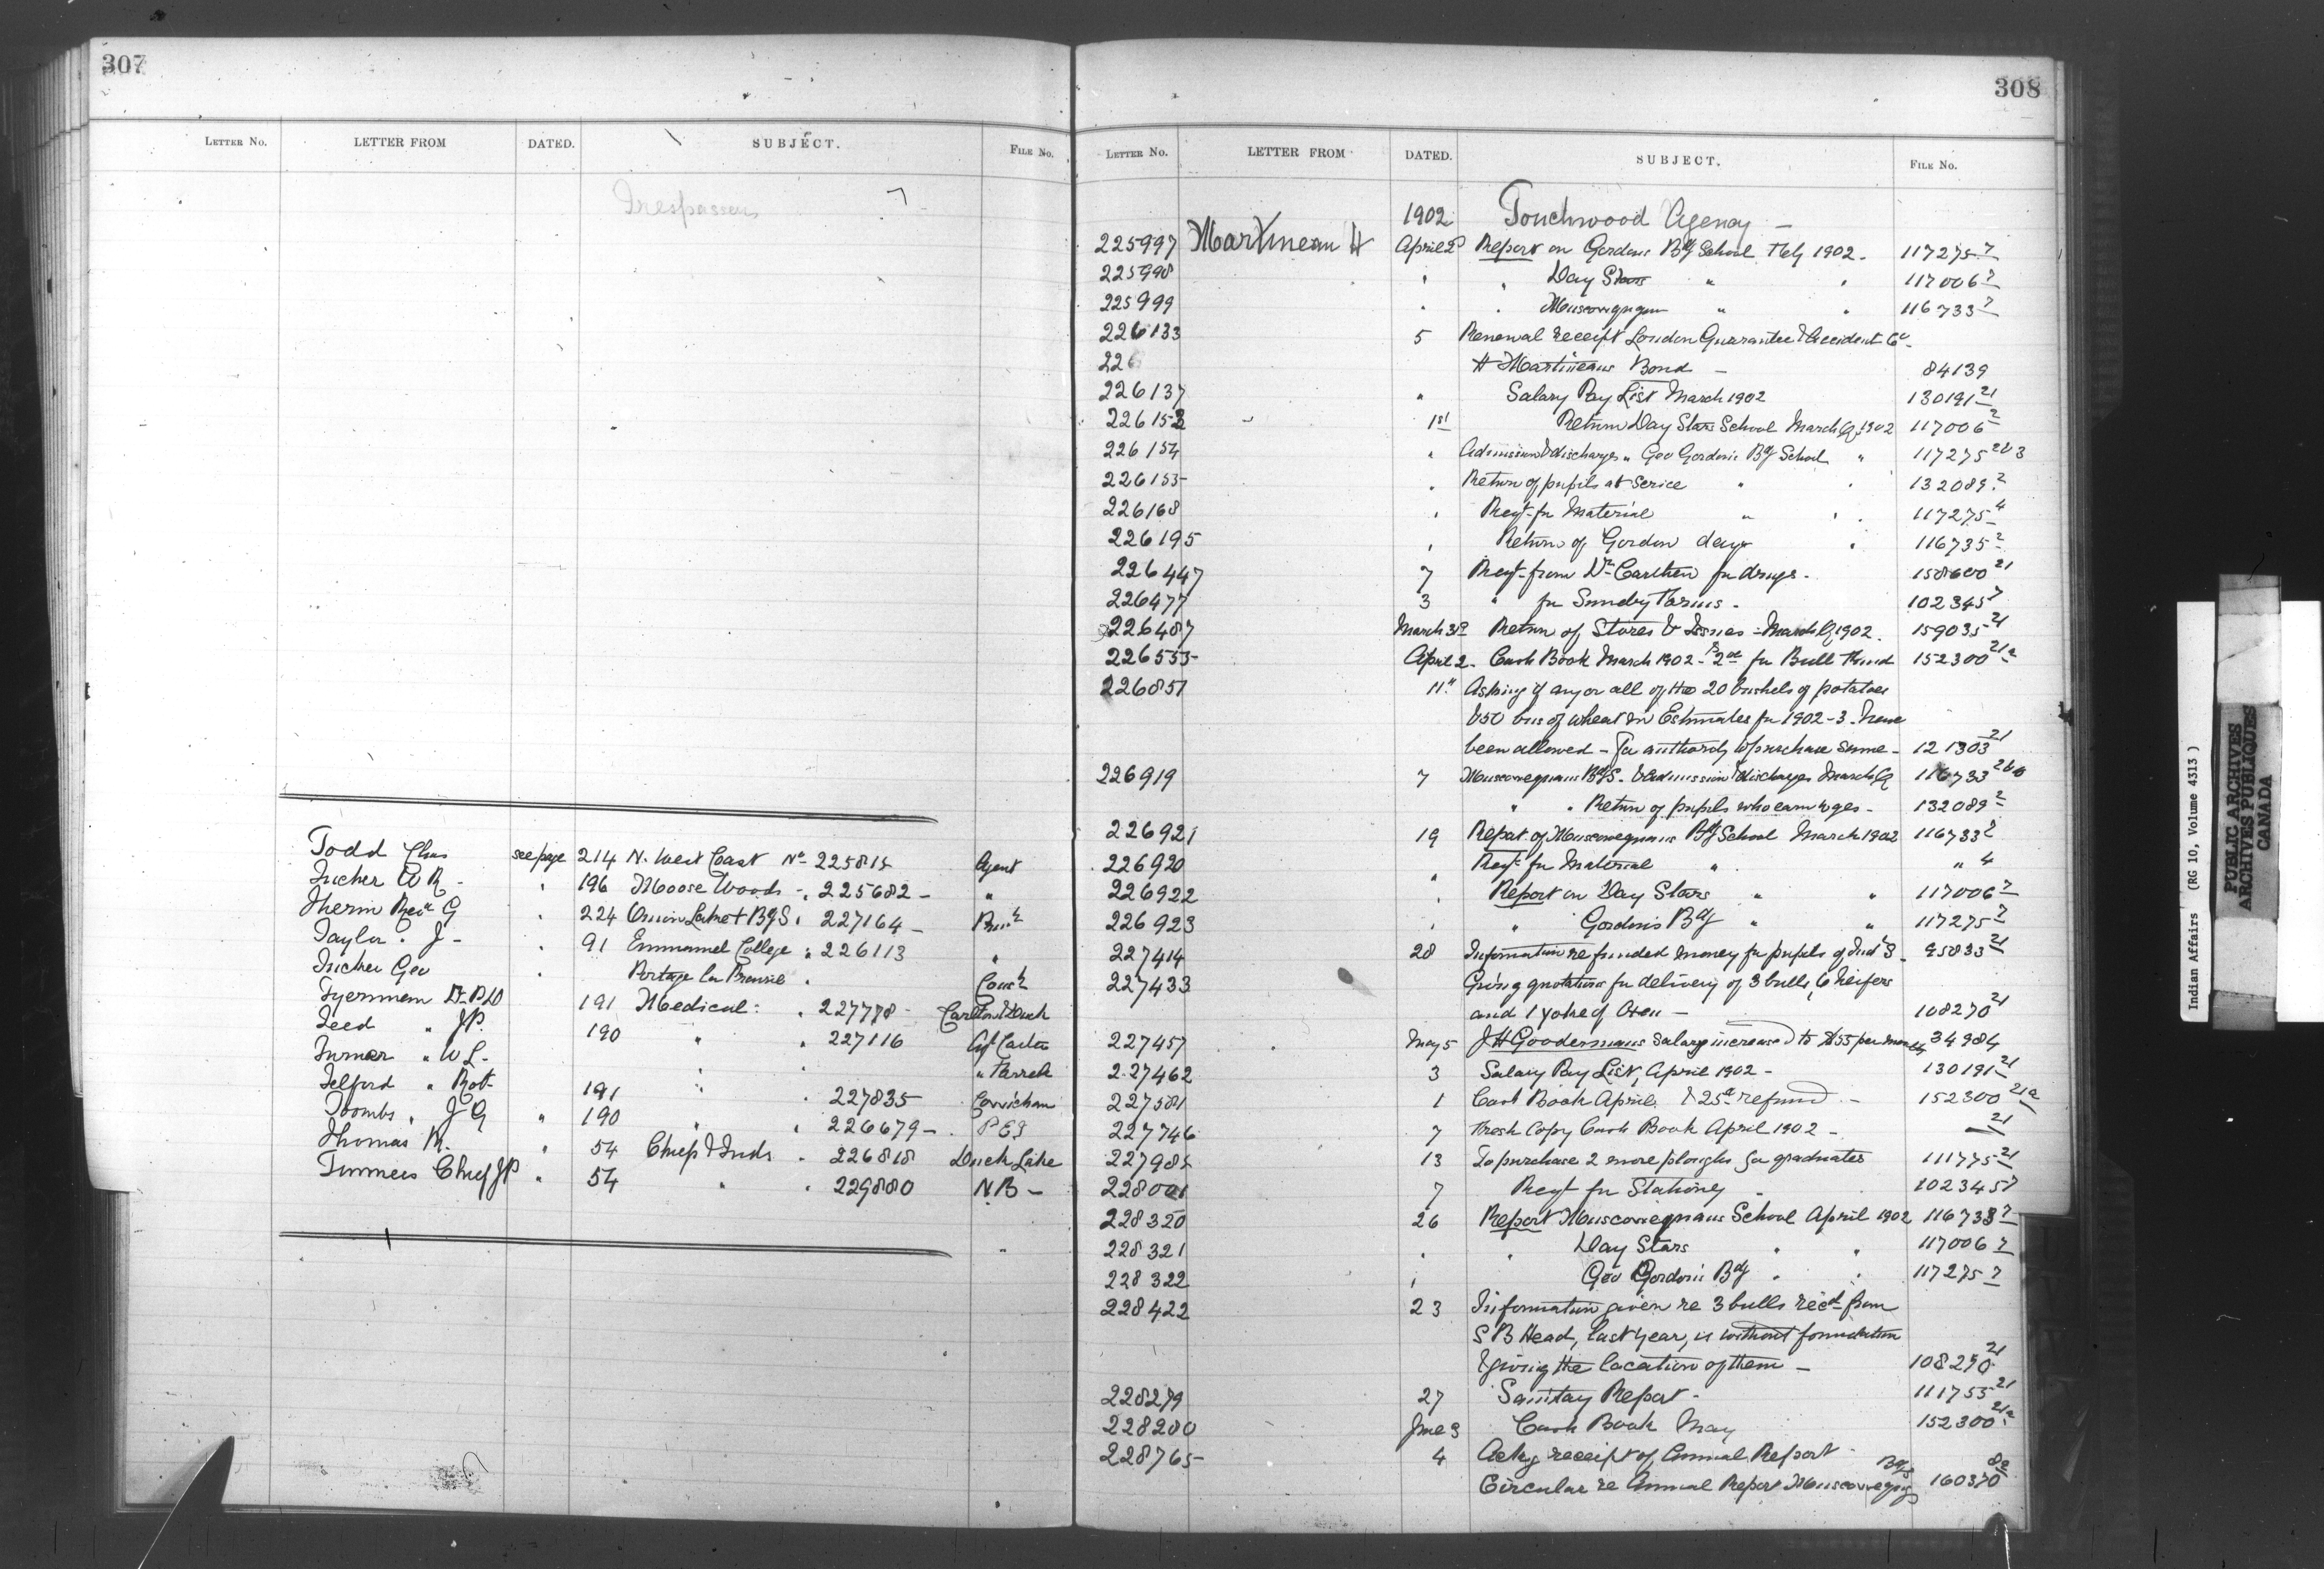 307
LETTER NO. LETTER FROM DATED. SUBJECT. FILE NO.
Trespassers
Todd Chas see page 214 N. West Coast No 225815 Agent
Tucher W R - " 196 Moose Woods - 225682 - "
Therin Revd G " 224 Onion Lake + BgS " 227164 -
Taylor . J - " 91 Emmanuel College " 226113 "
Tucher Geo " Portage La Prairie "
Tyerman Dr P D 191 Medical : " 227778 -
Teed " JP. 190 " " 227116
Turner " W L -
Telford " Robt 191 " 227835 Cowichan
Toombs " J G " 190 " " 226679 -
Thomas R. " 54 Chief & Inds " 226818 Duck Lake
Turners Chief JP " 54 " " 229880 N B -
308
LETTER NO. LETTER FROM DATED. SUBJECT. FILE NO.
1902 Touchwood Agency -
225997 Martineau H April 2d Report on Gordons Bdg School Feby 1902 - 117275 2
225998 " " Day Stars " " 117006 2
225999 " " Muscowequan " " 116733 2
226133 5 Renewal receipt London Guarantee & Accident Co -
226
H Martineaus Bond - 84139
226137 " Salary Pay List March 1902 130191 21
226153 " 1st Return Day Stars School March Q 1902 117006 2
226154 " Admission & discharges " Geo Gordons Bdg School " 117275 2b 3
226155 " Return of pupils at Serice " " 132089 2
226168 " Reqt for Material " " 117275 4
226195 " Return of Gordon day " 116735 2
226447 7 Reqt from Dr Carthew for drugs - 158600 21
226477 3 " for Sundry Forms - 102345 7
226487 March 31st Return of Stores & Issues - March Q 1902. 159035 21
226555 April 2 - Cash Book March 1902 - & 2nd for Bull Fund 152300 21a
226851 11th Asking if any or all of the 20 bushels of potatoes
& 50 bus of wheat in Estimates for 1902-3 - have
been allowed - for authority to purchase same - 121303 21
226919 7 Muscowequans BdgS. & Admission & discharges March Q 116733
" " Return of pupils who earn wages - 132089 2
226921 19 Report of Muscowequans Bdg School March 1902 116733 2
226920 " Reqt for Material " " 4
226922 " Report on Day Stars " " 117006 2
226923 " " Gordons Bdg " " 117275 2
227414 28 Information re funded money for pupils of Indl S - 95833 21
227433 Giving quotations for delivery of 3 bulls, 6 heifers
and 1 yoke of Oxen - 108270 21
227457 May 5 J H Goodermans salary increased to $55 per month 34984
227462 3 Salary Pay List, April 1902 - 130191 21
227581 1 Cash Book April & 25¢ refund - 152300 21a
227746 7 Fresh Copy Cash Book April 1902 - 21
227985 13 To purchase 2 more ploughs for graduates 111775 21
228001 7 Reqt for Stationery " 102345 7
228320 26 Report Muscowequans School April 1902 116733 2
228321 " " Day Stars " " 117006 2
228322 " Geo Gordons Bdg " " 117275 2
228422 23 Information given re 3 bulls recd from
S B Head, last year, is without foundation
& giving the location of them - 108270 21
228279 27 Sanitary Report - 111755 21
228280 June 3 Cash Book May 152300 21a
228765 4 Ackg receipt of Annual Report -
Circular re Annual Report Muscowequans BdgS 160370
Indian Affairs (RG 10, Volume 4313)
PUBLIC ARCHIVES
ARCHIVES PUBLIQUES
CANADA